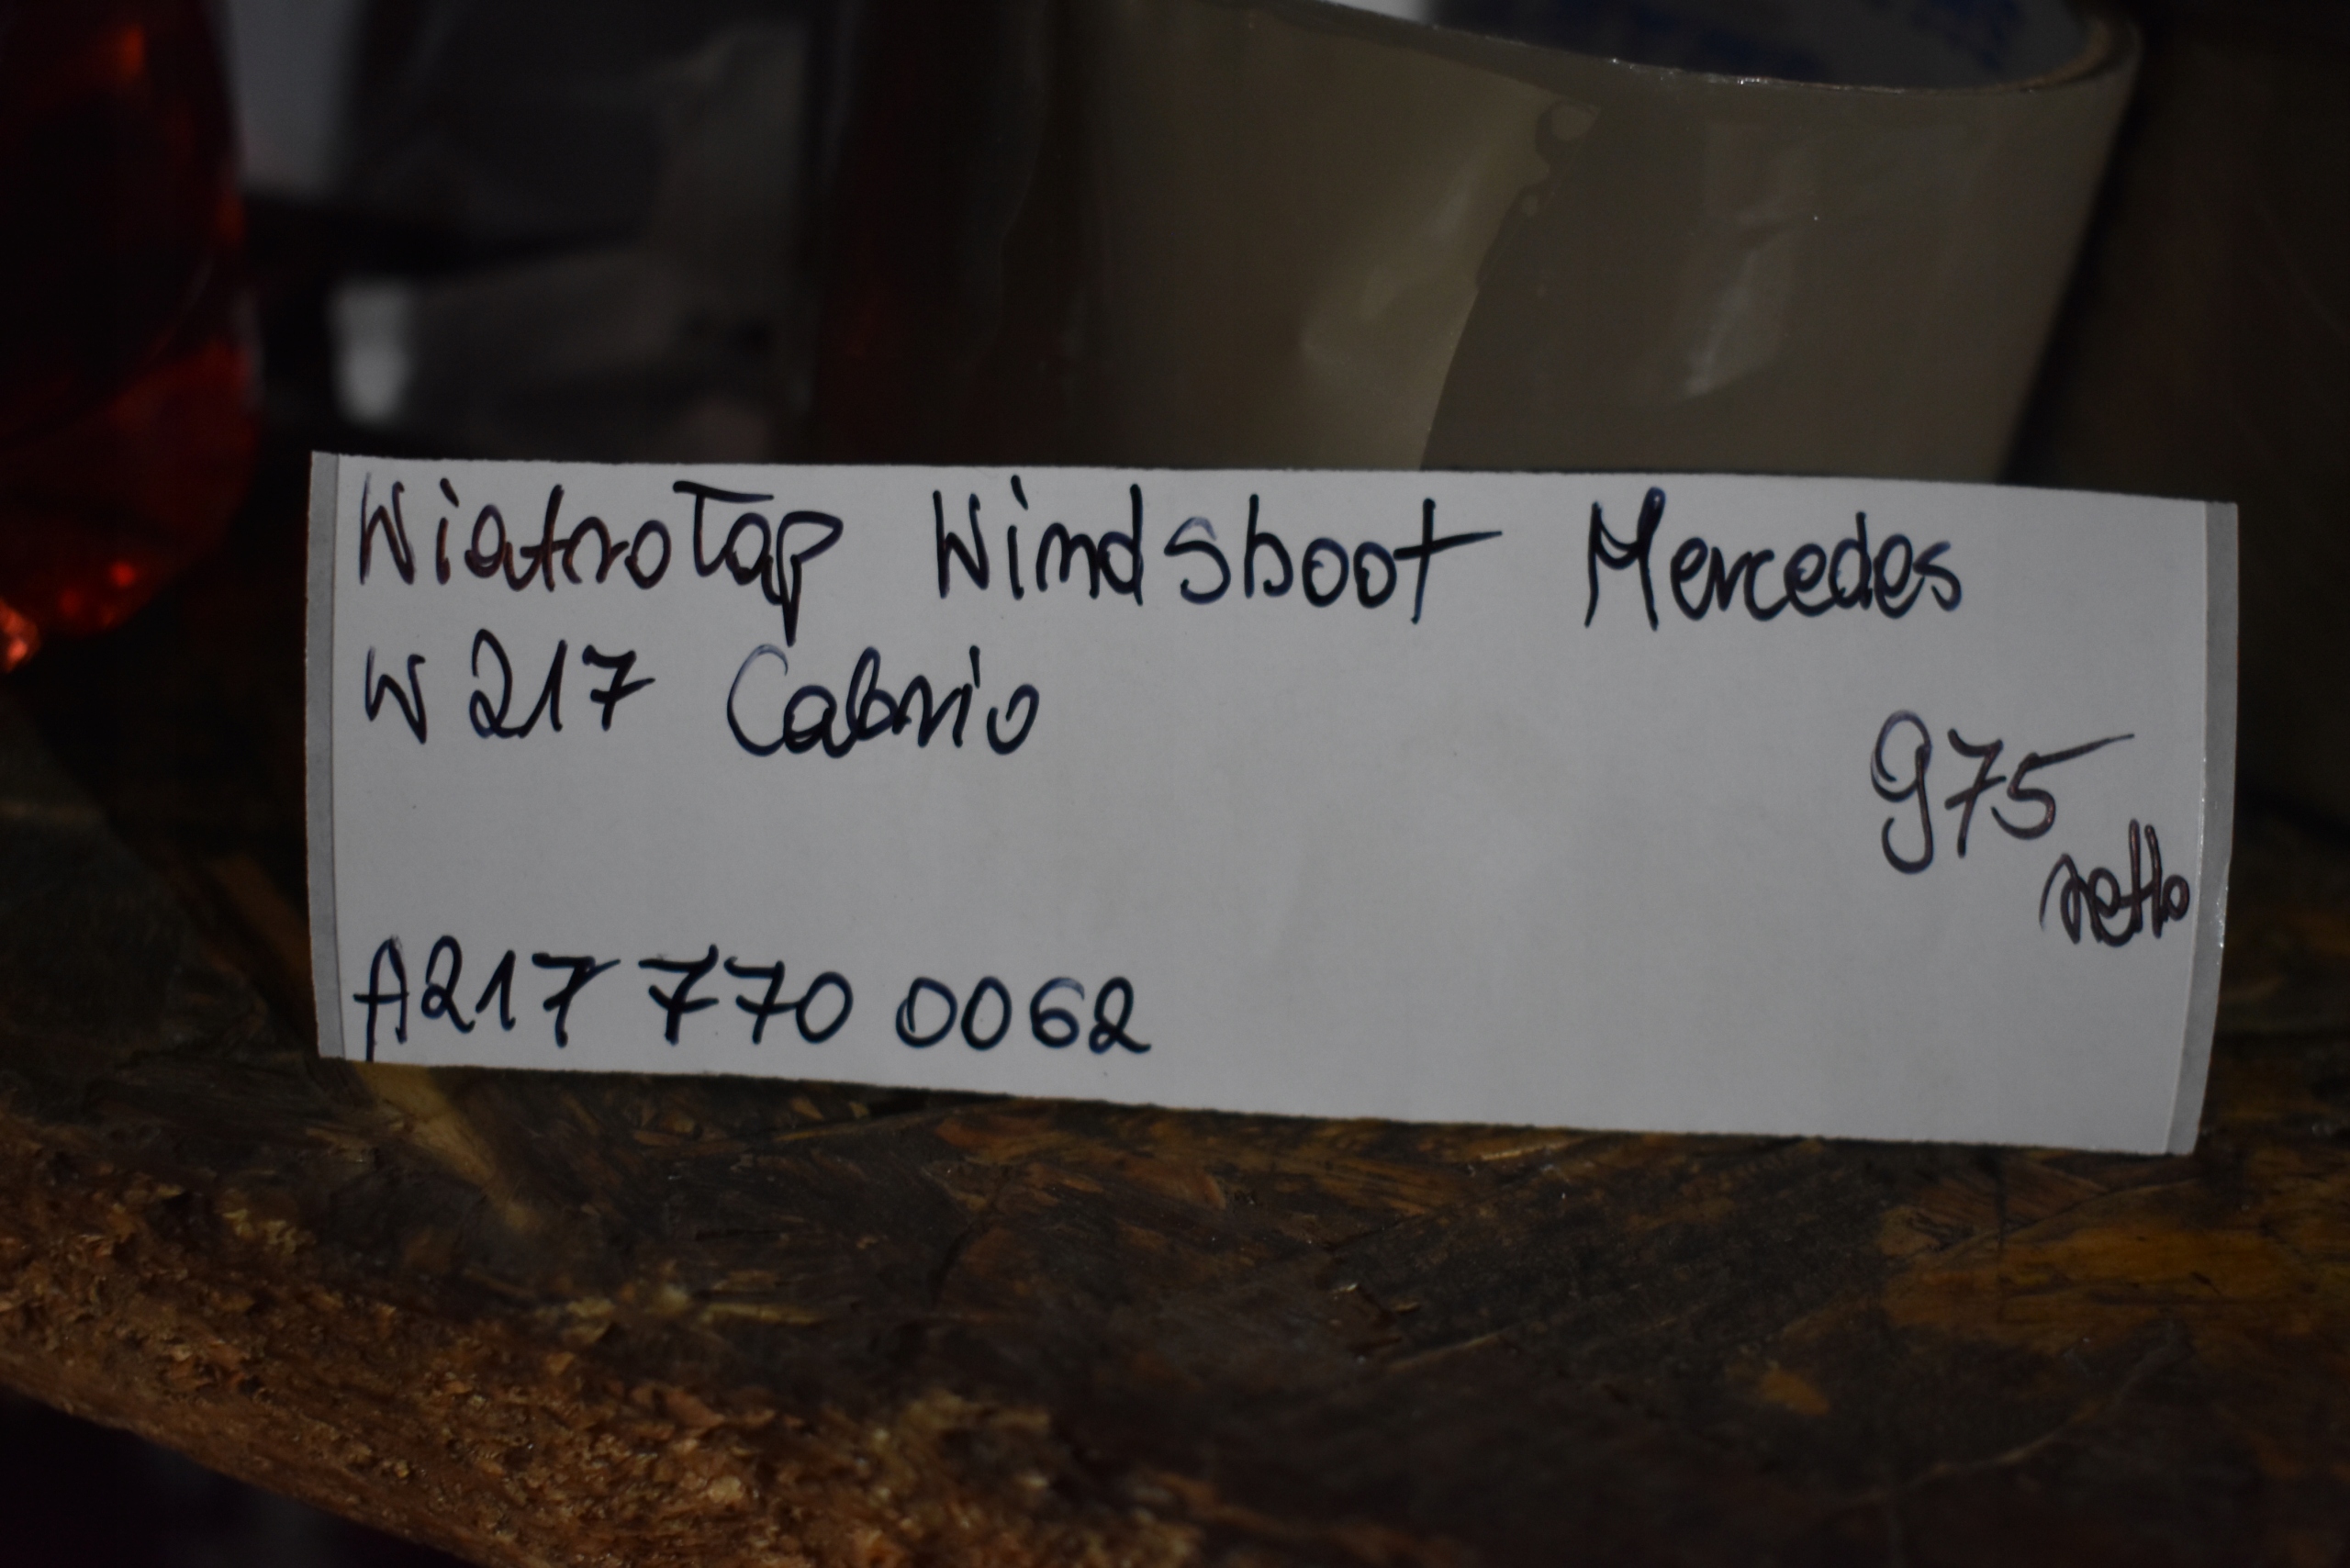 Wiatrołap Windshoot Mercedes
W217 Cabrio
975
netto
A217 770 0062